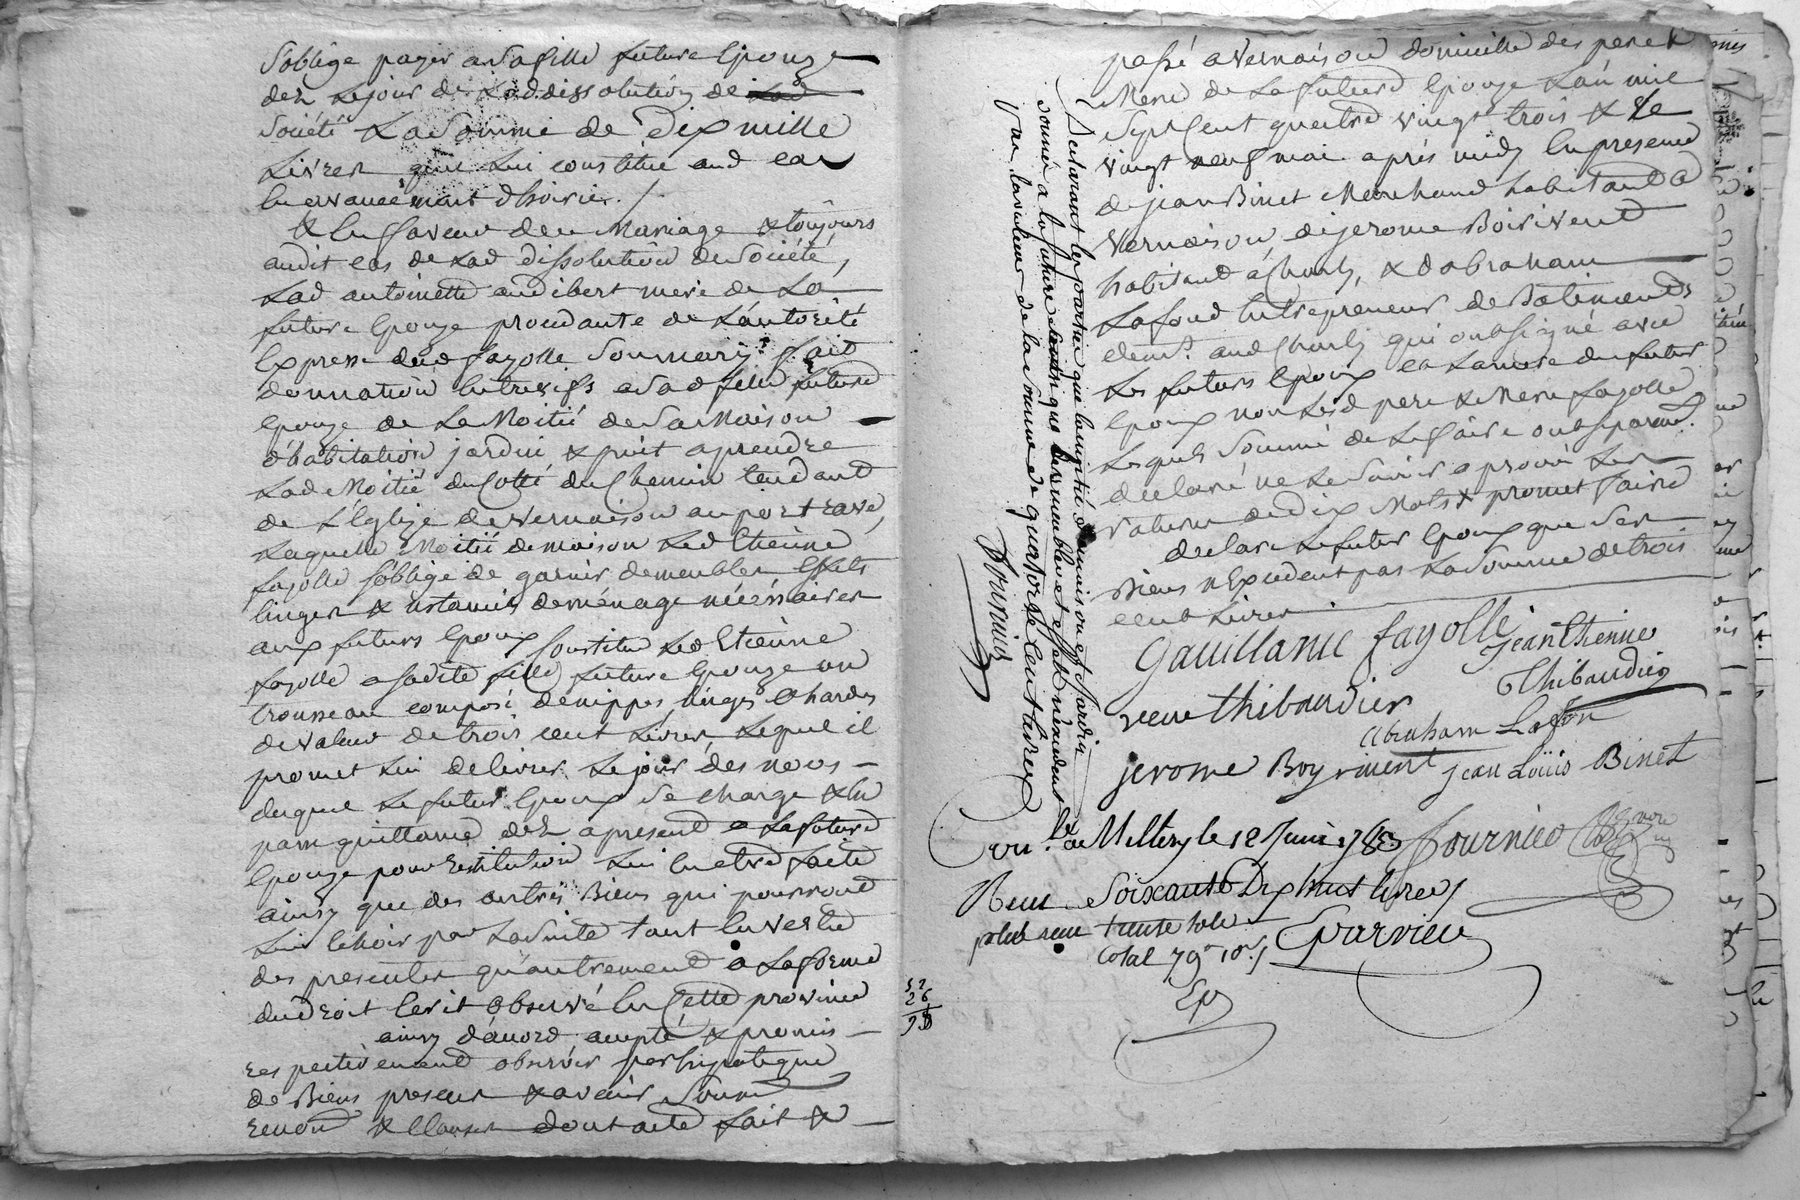 s'oblige payer a sa fille future Epouze
dez le jour de lad. dissolution de lad
société la somme de dix mille
Livres qu'il lui constitue aud cas
En avancement d'hoirie. /
& En faveur de ce mariage & toujours
audit cas de lad dissolution de société,
Lad antoinette audibert mere de la
future Epouze procedante de l'autorité
Expresse dud fayolle son mary fait
donnation Entrevifs a sad fille future
Epouze de la Moitié de sa Maison
d'habitation jardin & puit a prendre
Lad Moitié du Cotté du Chemin tendant
de L'Eglize de vernaison au port ravé,
Laquelle Moitié de maison Led Etienne
fayolle s'oblige de garnir de meubles Effets
linges & ustancils de ménage nécéssaires
aux futurs Epoux Constitue Led Etienne
fayolle a sadite fille future Epouze un
trousseau composé de nippes, linges & hardes
de valeur de trois cent Livres, Lequel il
promet lui delivrer Le jour des nôces —
duquel Le futur Epoux se charge & En
passe quittance dez a present a La future
Epouze pour restitution lui En etre faite
ainsy que des autres Biens qui pourront
Lui Echoir par La suite tant En vertu
des presentes qu'autrement a La forme
du droit Ecrit observé En Cette province
ainsy d'acord accepté, & promis —
respectivement observer par hipoteque
de Biens presens & avenir soumis
renon & Clauses dont acte fait &
passé a vernaison domicille des pere &
Mere de La future Epouze L'an mil
sept Cent quatre vingt trois & Le
vingt neuf mai après midy En presence
de jean Binet Marchand habitant a
vernaison, de jerome Boirivent
habitant à Charly, & d'abraham
Lafond Entrepreneur de Batiments
demt. aud Charly qui ont signé avec
Les futurs Epoux Et La mere du futur
Epoux non Lesd pere & Mere fayolle
Lesquels sommé de Le faire ont separemt.
declaré ne Le savoir aprouvé Les
ratures de dix Mots & promet faire
declare Le futur Epoux que ses
Biens n'Excedent pas La somme de trois
cent Livres
Declarant les parties que la moitié de maison et Jardin
donnée a la future ainsi que les meubles et effets n'excedent
une la valeur de la somme de quatorze Cent livres
fournier
Gauillanne fayolle
Jean Etienne
Thibaudier
veuve thibaudier
Abraham Lafon
jerome Boyrivent jean Loüis Binet
Con.lé a Millery le 12 Juin 1783 fournier
Reçu Soixante Dix huit livres
plus reçu trente sols
total 79# 10s.
Parrieu
52
26
78